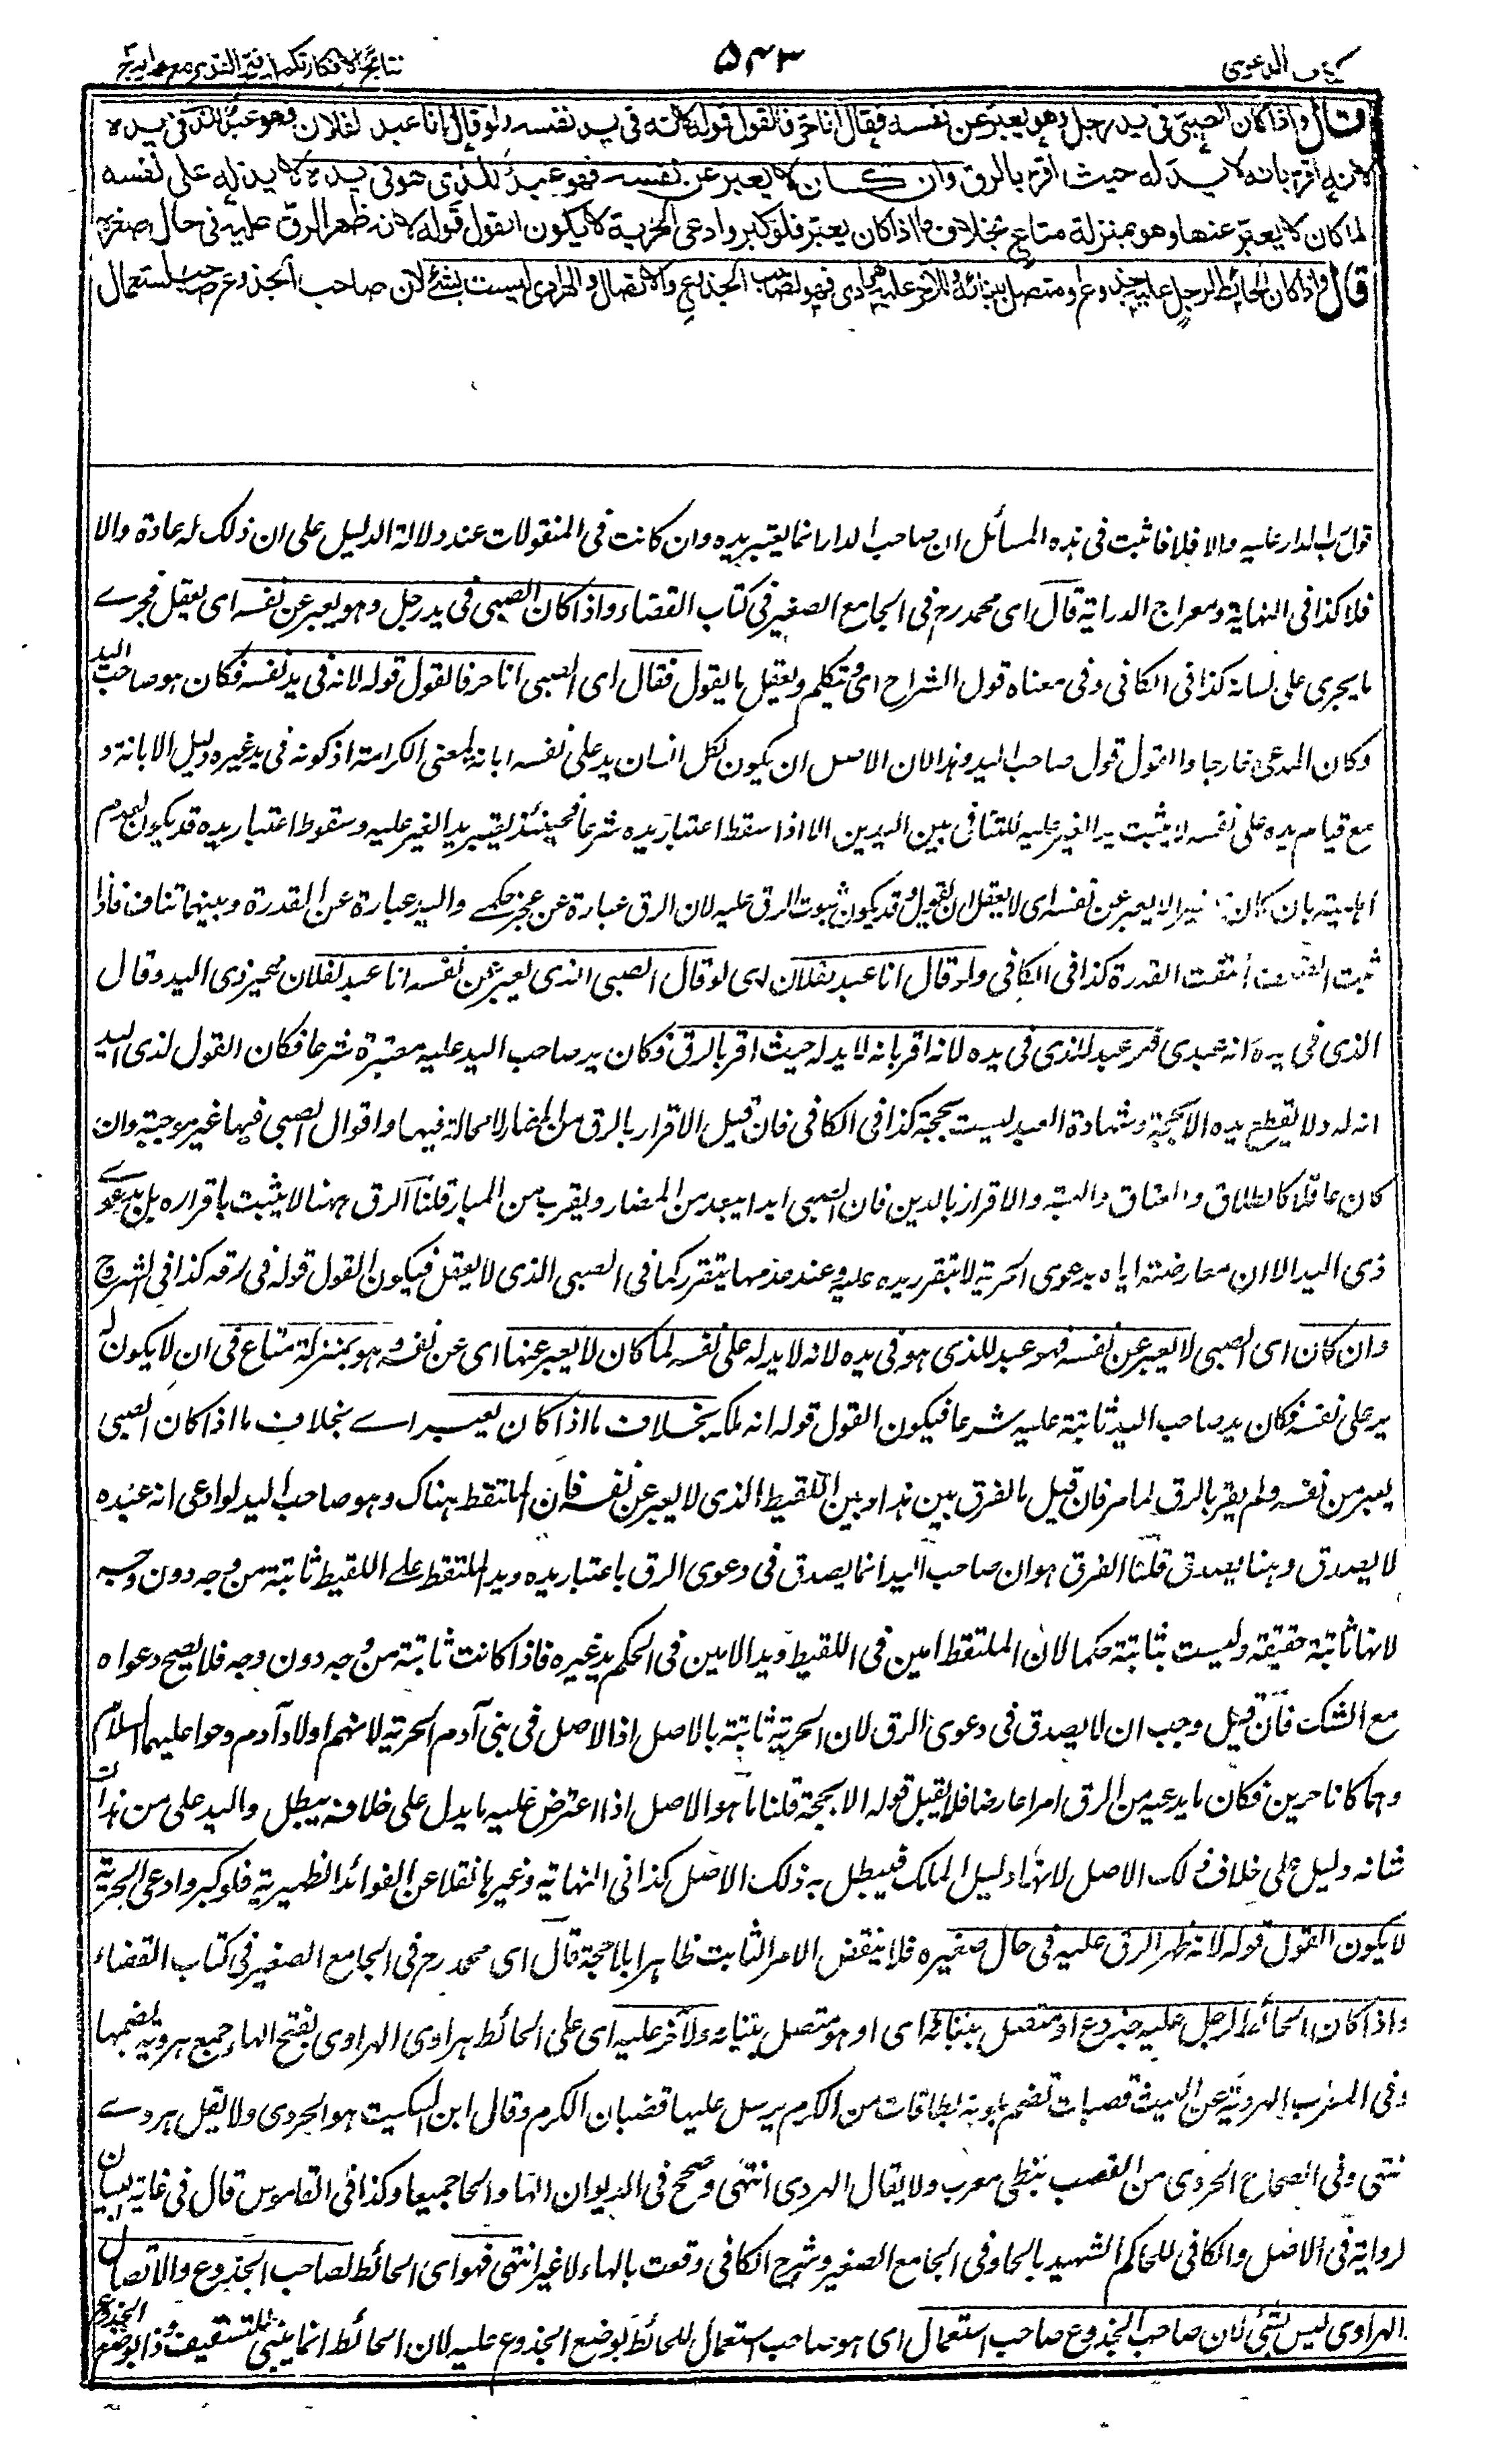 كتاب الدعوى
٥٤٣
نتائج الافكار تكملة فتح القدير مع هداية ج
قال واذا كان الصبي في يد رجل وهو يعبر عن نفسه فقال انا حر فالقول قوله لانه في يد نفسه ولو قال انا عبد لفلان فهو عبد للذي في يده
لانه اقر بانه لا يد له حيث اقر بالرق وان كان لا يعبر عن نفسه فهو عبد للذي هو في يده لانه لا يد له على نفسه
لما كان لا يعبر عنها وهو بمنزلة متاع بخلاف ما اذا كان يعبر فلو كبر وادعى الحرية لا يكون القول قوله لانه ظهر الرق عليه في حال صغره
قال واذا كان الحائط لرجل عليه جذوع او متصل ببنائه ولآخر عليه هرادي فهو لصاحب الجذوع والاتصال والهرادي ليست بشئ لان صاحب الجذوع صاحب استعمال
قول رب الدار عليه والا فلا فما ثبت في هذه المسائل ان صاحب الدار انما يعتبر يده وان كانت في المنقولات عند دلالة الدليل على ان ذلك له عادة والا
فلا كذا في النهاية ومعراج الدراية قال اى محمد رح في الجامع الصغير في كتاب القضاء واذا كان الصبي في يد رجل وهو يعبر عن نفسه اى يعقل فجرے
ما يجرى على لسانه كذا في الكافي وفي معناه قول الشراح اى يتكلم ويعقل ما يقول فقال اى الصبي انا حر فالقول قوله لانه في يد نفسه فكان هو صاحب اليد
وكان المدعى خارجا والقول قول صاحب اليد وهذا لان الاصل ان يكون لكل انسان يد على نفسه ابانة لمعنى الكرامة اذ كونه في يد غيره دليل الاهانة و
مع قيام يده على نفسه لا يثبت يد الغير عليه للتنافى بين اليدين الا اذا سقط اعتبار يده شرعا فحينئذ يعتبر يد الغير عليه وسقوط اعتبار يده قد يكون لعدم
اهليته بان كان صغيرا لا يعبر عن نفسه اى لا يعقل ان يقول وقد يكون ثبوت الرق عليه لان الرق عبارة عن عجز حكمے واليد عبارة عن القدرة وبينهما تناف فاذا
ثبت الضعف انتفت القدرة كذا في الكافي ولو قال انا عبد لفلان اى لو قال الصبي الذى يعبر عن نفسه انا عبد لفلان غير ذى اليد وقال
الذى في يده انه عبدى فهو عبد للذى في يده لانه اقر بانه لا يد له حيث اقر بالرق فكان يد صاحب اليد عليه معتبرة شرعا فكان القول لذى اليد
انه له ولا يقطع يده الا بحجة وشهادة العبد ليست بحجة كذا في الكافي فان قيل الاقرار بالرق من المضار لا محالة فيها واقوال الصبي فيها غير موجبة وان
كان عاقلا كالطلاق والعتاق والهبة والاقرار بالدين فان الصبي ابدا يبعد من المضار ويقرب من المبار قلنا الرق ههنا لا يثبت باقراره بل بدعوے
ذى اليد الا ان معارضته اياه بدعوى الحرية لا تتقرر يده عليه وعند عدمها يتقرر كما في الصبي الذى لا يعقل فيكون القول قوله في رقه كذا في الشروح
وان كان اى الصبي لا يعبر عن نفسه فهو عبد للذى هو في يده لانه لا يد له على نفسه لما كان لا يعبر عنها اى عن نفسه وهو بمنزلة متاع في ان لا يكون له
يد على نفسه فكان يد صاحب اليد ثابتة عليه شرعا فيكون القول قوله انه ملكه بخلاف ما اذا كان يعبر اے بخلاف ما اذا كان الصبي
يعبر عن نفسه ولم يقر بالرق لما مر فان قيل ما الفرق بين هذا وبين اللقيط الذى لا يعبر عن نفسه فان الملتقط هناك وهو صاحب اليد لو ادعى انه عبده
لا يصدق وهنا يصدق قلنا الفرق هو ان صاحب اليد انما يصدق في دعوى الرق باعتبار يده ويد الملتقط على اللقيط ثابتة من وجه دون وجه
لانها ثابتة حقيقة وليست بثابتة حكما لان الملتقط امين في اللقيط ويد الامين في الحكم يد غيره فاذا كانت ثابتة من وجه دون وجه فلا يصح دعواه
مع الشك فان قيل وجب ان لا يصدق في دعوى الرق لان الحرية ثابتة بالاصل اذ الاصل في بنى آدم الحرية لانهم اولاد آدم وحوا عليهما السلام
وهما كانا حرين فكان ما يدعيه من الرق امرا عارضا فلا يقبل قوله الا بحجة قلنا ما هو الاصل اذا اعترض عليه ما يدل على خلافه يبطل واليد على من هذا
شانه دليل على خلاف ذلك الاصل لانها دليل الملك فيبطل به ذلك الاصل كذا في النهاية وغيرها نقلا عن الفوائد الظهيرية فلو كبر وادعى الحرية
لا يكون القول قوله لانه ظهر الرق عليه في حال صغره فلا ينقض الامر الثابت ظاهرا بلا حجة قال اى محمد رح في الجامع الصغير في كتاب القضاء
واذا كان الحائط لرجل عليه جذوع او متصل ببنائه اى او هو متصل ببنائه ولآخر عليه اى على الحائط هرادى الهرادى بفتح الهاء جمع هردية بضمها
وفى المغرب الهردية عن الليث قصبات تضم ملوية بطاقات من الكرم يرسل عليها قضبان الكرم وقال ابن السكيت هو الحردى ولا يقل هردے
انتهى وفى الصحاح الحردى من القصب نبطى معرب ولا يقال الهردى انتهى وصحح في الديوان الهاء والحا جميعا وكذا في القاموس قال في غاية البيان
الرواية في الاصل والكافي للحاكم الشهيد بالحا وفى الجامع الصغير وشرح الكافي وقعت بالهاء لا غير انتهى فهو اى الحائط لصاحب الجذوع والاتصال
الهرادى ليس بشئ لان صاحب الجذوع صاحب استعمال اى هو صاحب استعمال للحائط بوضع الجذوع عليه لان الحائط انما يبنى للتسقيف وذا بوضع الجذوع